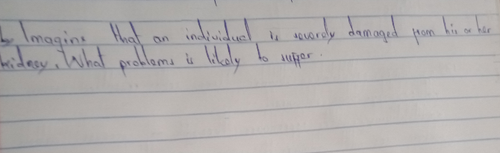 Imagine that an individual is severely damaged from his or her
kidney. What problems is likely to suffer.